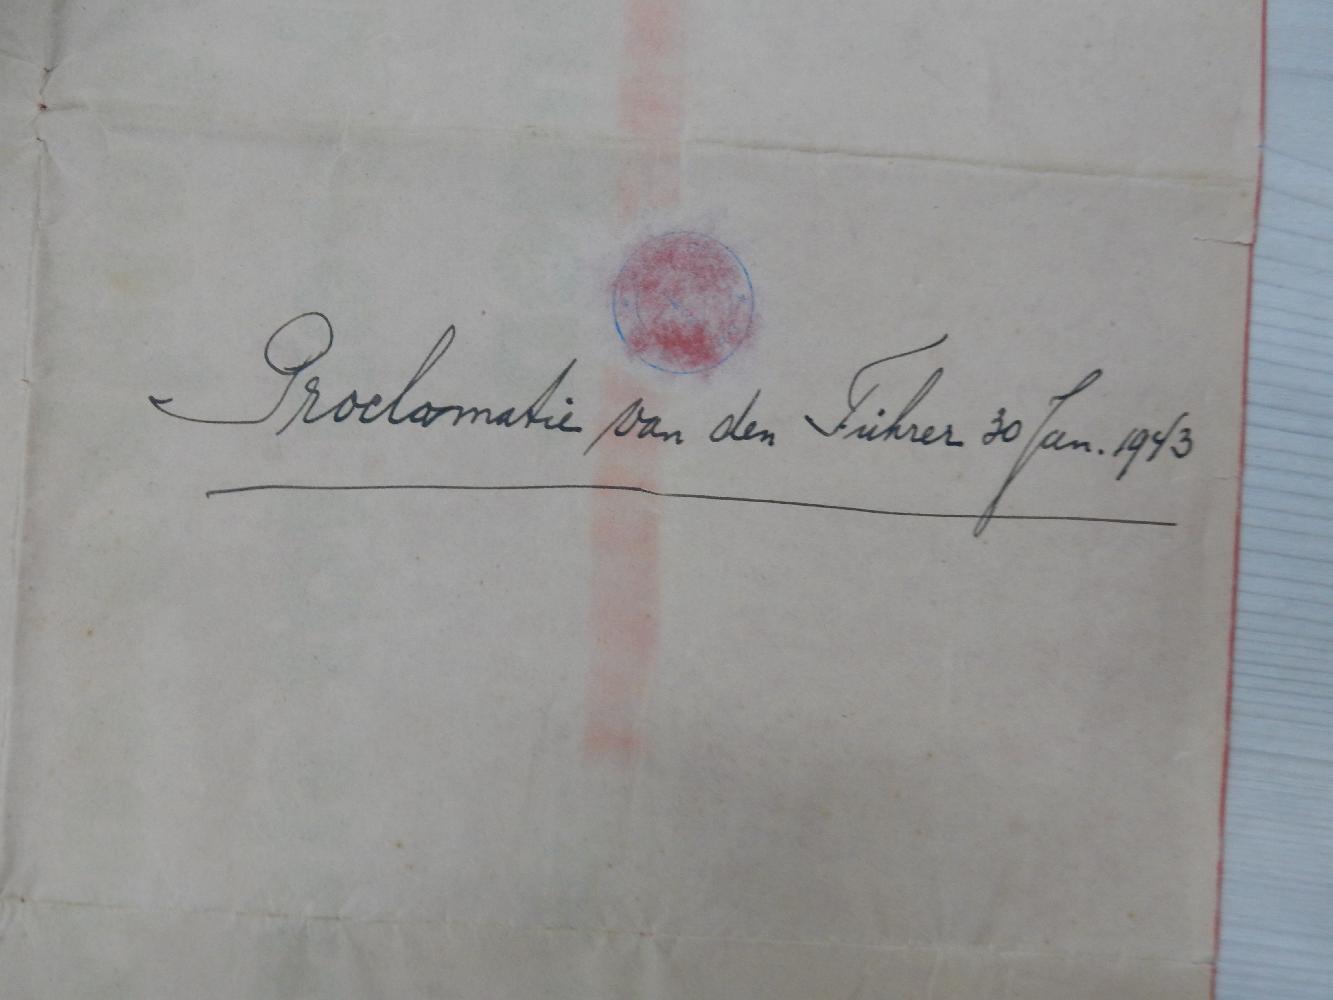 Proclamatie van den Führer 30 Jan. 1943